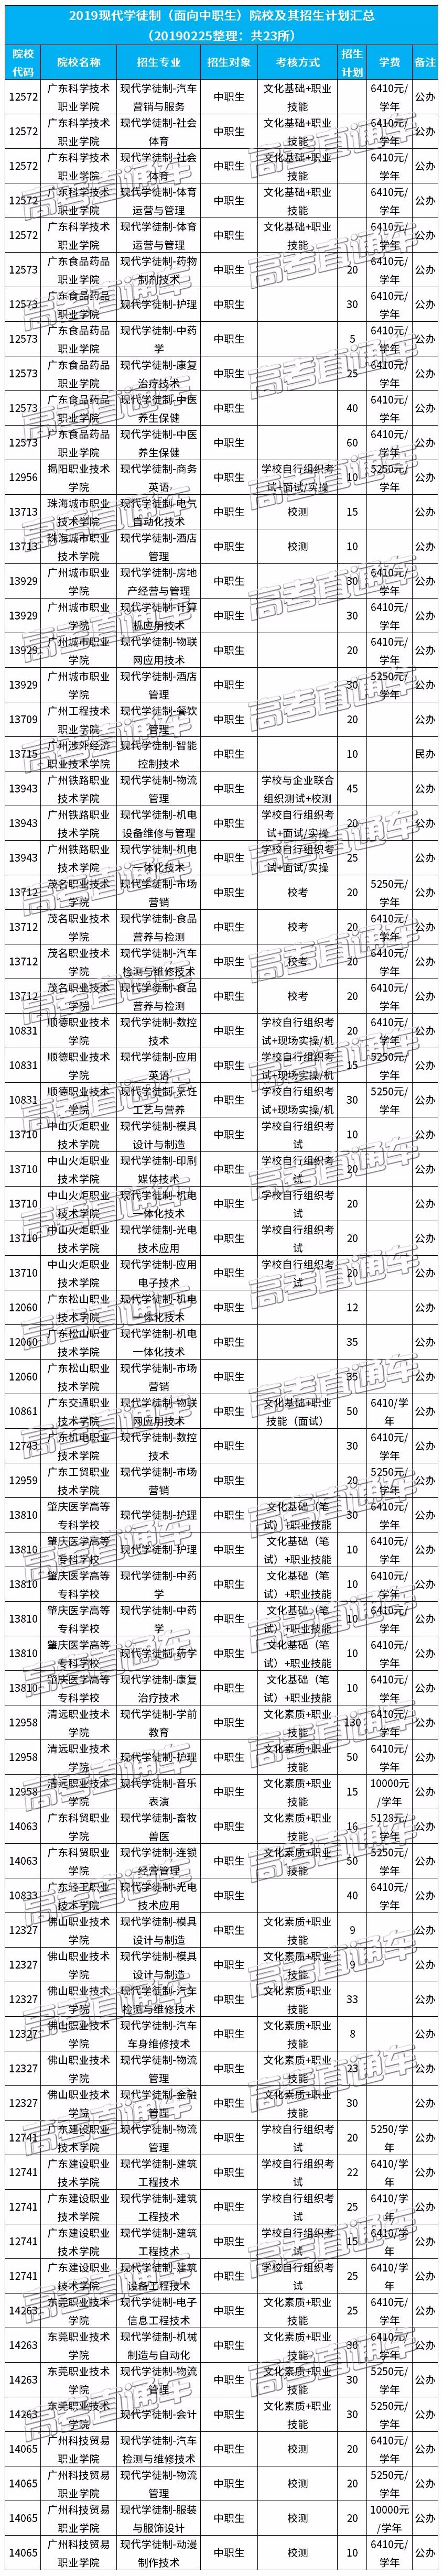 2019现代学徒制（面向中职生）院校及其招生计划汇总
（20190225整理：共23所）
院校代码 院校名称 招生专业 招生对象 考核方式 招生计划 学费 备注
12572 广东科学技术职业学院 现代学徒制-汽车营销与服务 中职生 文化基础+职业技能 6410元/学年 公办
12572 广东科学技术职业学院 现代学徒制-社会体育 中职生 文化基础+职业技能 6410元/学年 公办
12572 广东科学技术职业学院 现代学徒制-社会体育 中职生 文化基础+职业技能 6410元/学年 公办
12572 广东科学技术职业学院 现代学徒制-体育运营与管理 中职生 文化基础+职业技能 6410元/学年 公办
12572 广东科学技术职业学院 现代学徒制-体育运营与管理 中职生 文化基础+职业技能 6410元/学年 公办
12573 广东食品药品职业学院 现代学徒制-药物制剂技术 中职生 20 6410元/学年 公办
12573 广东食品药品职业学院 现代学徒制-护理 中职生 30 6410元/学年 公办
12573 广东食品药品职业学院 现代学徒制-中药学 中职生 5 6410元/学年 公办
12573 广东食品药品职业学院 现代学徒制-康复治疗技术 中职生 25 6410元/学年 公办
12573 广东食品药品职业学院 现代学徒制-中医养生保健 中职生 40 6410元/学年 公办
12573 广东食品药品职业学院 现代学徒制-中医养生保健 中职生 60 6410元/学年 公办
12956 揭阳职业技术学院 现代学徒制-商务英语 中职生 学校自行组织考试+面试/实操 10 5250元/学年 公办
13713 珠海城市职业技术学院 现代学徒制-电气自动化技术 中职生 校测 15 公办
13713 珠海城市职业技术学院 现代学徒制-酒店管理 中职生 校测 10 公办
13929 广州城市职业学院 现代学徒制-房地产经营与管理 中职生 30 6410元/学年 公办
13929 广州城市职业学院 现代学徒制-计算机应用技术 中职生 30 6410元/学年 公办
13929 广州城市职业学院 现代学徒制-物联网应用技术 中职生 20 6410元/学年 公办
13929 广州城市职业学院 现代学徒制-酒店管理 中职生 30 5250元/学年 公办
13709 广州工程技术职业学院 现代学徒制-餐饮管理 中职生 20 公办
13715 广州涉外经济职业技术学院 现代学徒制-智能控制技术 中职生 10 民办
13943 广州铁路职业技术学院 现代学徒制-物流管理 中职生 学校与企业联合组织测试+校测 45 公办
13943 广州铁路职业技术学院 现代学徒制-机电设备维修与管理 中职生 学校自行组织考试+面试/实操 20 公办
13943 广州铁路职业技术学院 现代学徒制-机电一体化技术 中职生 学校自行组织考试+面试/实操 25 公办
13712 茂名职业技术学院 现代学徒制-市场营销 中职生 校考 20 5250元/学年 公办
13712 茂名职业技术学院 现代学徒制-食品营养与检测 中职生 校考 20 6410元/学年 公办
13712 茂名职业技术学院 现代学徒制-汽车检测与维修技术 中职生 校考 20 6410元/学年 公办
13712 茂名职业技术学院 现代学徒制-食品营养与检测 中职生 校考 20 6410元/学年 公办
10831 顺德职业技术学院 现代学徒制-数控技术 中职生 学校自行组织考试+现场实操/机 20 6410元/学年 公办
10831 顺德职业技术学院 现代学徒制-应用英语 中职生 学校自行组织考试+现场实操/机 15 5250元/学年 公办
10831 顺德职业技术学院 现代学徒制-烹饪工艺与营养 中职生 学校自行组织考试+现场实操/机 30 5250元/学年 公办
13710 中山火炬职业技术学院 现代学徒制-模具设计与制造 中职生 学校自行组织考试 10 公办
13710 中山火炬职业技术学院 现代学徒制-印刷媒体技术 中职生 学校自行组织考试 20 公办
13710 中山火炬职业技术学院 现代学徒制-机电一体化技术 中职生 学校自行组织考试 20 公办
13710 中山火炬职业技术学院 现代学徒制-光电技术应用 中职生 学校自行组织考试 20 公办
13710 中山火炬职业技术学院 现代学徒制-应用电子技术 中职生 学校自行组织考试 20 公办
12060 广东松山职业技术学院 现代学徒制-机电一体化技术 中职生 12 公办
12060 广东松山职业技术学院 现代学徒制-机电一体化技术 中职生 35 公办
12060 广东松山职业技术学院 现代学徒制-市场营销 中职生 35 公办
10861 广东交通职业技术学院 现代学徒制-物联网应用技术 中职生 文化基础+职业技能（面试） 50 6410/学年 公办
12743 广东机电职业技术学院 现代学徒制-数控技术 中职生 30 6410元/学年 公办
12959 广东工贸职业技术学院 现代学徒制-市场营销 中职生 20 5250元/学年 公办
13810 肇庆医学高等专科学校 现代学徒制-护理 中职生 文化基础（笔试）+职业技能 30 6410元/学年 公办
13810 肇庆医学高等专科学校 现代学徒制-护理 中职生 文化基础（笔试）+职业技能 10 6410元/学年 公办
13810 肇庆医学高等专科学校 现代学徒制-中药学 中职生 文化基础（笔试）+职业技能 10 6410元/学年 公办
13810 肇庆医学高等专科学校 现代学徒制-中药学 中职生 文化基础（笔试）+职业技能 10 6410元/学年 公办
13810 肇庆医学高等专科学校 现代学徒制-药学 中职生 文化基础（笔试）+职业技能 10 6410元/学年 公办
13810 肇庆医学高等专科学校 现代学徒制-康复治疗技术 中职生 文化基础（笔试）+职业技能 10 6410元/学年 公办
12958 清远职业技术学院 现代学徒制-学前教育 中职生 文化素质+职业技能 130 6410元/学年 公办
12958 清远职业技术学院 现代学徒制-护理 中职生 文化素质+职业技能 50 6410元/学年 公办
12958 清远职业技术学院 现代学徒制-音乐表演 中职生 文化素质+职业技能 15 10000元/学年 公办
14063 广东科贸职业学院 现代学徒制-畜牧兽医 中职生 文化素质+职业技能 16 5128元/学年 公办
14063 广东科贸职业学院 现代学徒制-连锁经营管理 中职生 文化素质+职业技能 50 5250元/学年 公办
10833 广东轻工职业技术学院 现代学徒制-光电技术应用 中职生 40 6410元/学年 公办
12327 佛山职业技术学院 现代学徒制-模具设计与制造 中职生 文化素质+职业技能 9 公办
12327 佛山职业技术学院 现代学徒制-模具设计与制造 中职生 文化素质+职业技能 9 公办
12327 佛山职业技术学院 现代学徒制-汽车检测与维修技术 中职生 文化素质+职业技能 33 公办
12327 佛山职业技术学院 现代学徒制-汽车车身维修技术 中职生 文化素质+职业技能 8 公办
12327 佛山职业技术学院 现代学徒制-物流管理 中职生 文化素质+职业技能 23 公办
12327 佛山职业技术学院 现代学徒制-金融管理 中职生 文化素质+职业技能 30 公办
12741 广东建设职业技术学院 现代学徒制-物流管理 中职生 学校自行组织考试 20 5250/学年 公办
12741 广东建设职业技术学院 现代学徒制-建筑工程技术 中职生 学校自行组织考试 22 6410/学年 公办
12741 广东建设职业技术学院 现代学徒制-建筑工程技术 中职生 学校自行组织考试 25 6410/学年 公办
12741 广东建设职业技术学院 现代学徒制-建筑工程技术 中职生 学校自行组织考试 15 6410/学年 公办
12741 广东建设职业技术学院 现代学徒制-建筑设备工程技术 中职生 学校自行组织考试 25 6410/学年 公办
14263 东莞职业技术学院 现代学徒制-电子信息工程技术 中职生 文化素质+职业技能 25 6410元/学年 公办
14263 东莞职业技术学院 现代学徒制-机械制造与自动化 中职生 文化素质+职业技能 30 6410元/学年 公办
14263 东莞职业技术学院 现代学徒制-物流管理 中职生 文化素质+职业技能 30 5250元/学年 公办
14263 东莞职业技术学院 现代学徒制-会计 中职生 文化素质+职业技能 30 5250元/学年 公办
14065 广州科技贸易职业学院 现代学徒制-汽车检测与维修技术 中职生 校测 20 6410元/学年 公办
14065 广州科技贸易职业学院 现代学徒制-物流管理 中职生 校测 20 5250元/学年 公办
14065 广州科技贸易职业学院 现代学徒制-服装与服饰设计 中职生 校测 20 10000元/学年 公办
14065 广州科技贸易职业学院 现代学徒制-动漫制作技术 中职生 校测 10 6410元/学年 公办
高考直通车